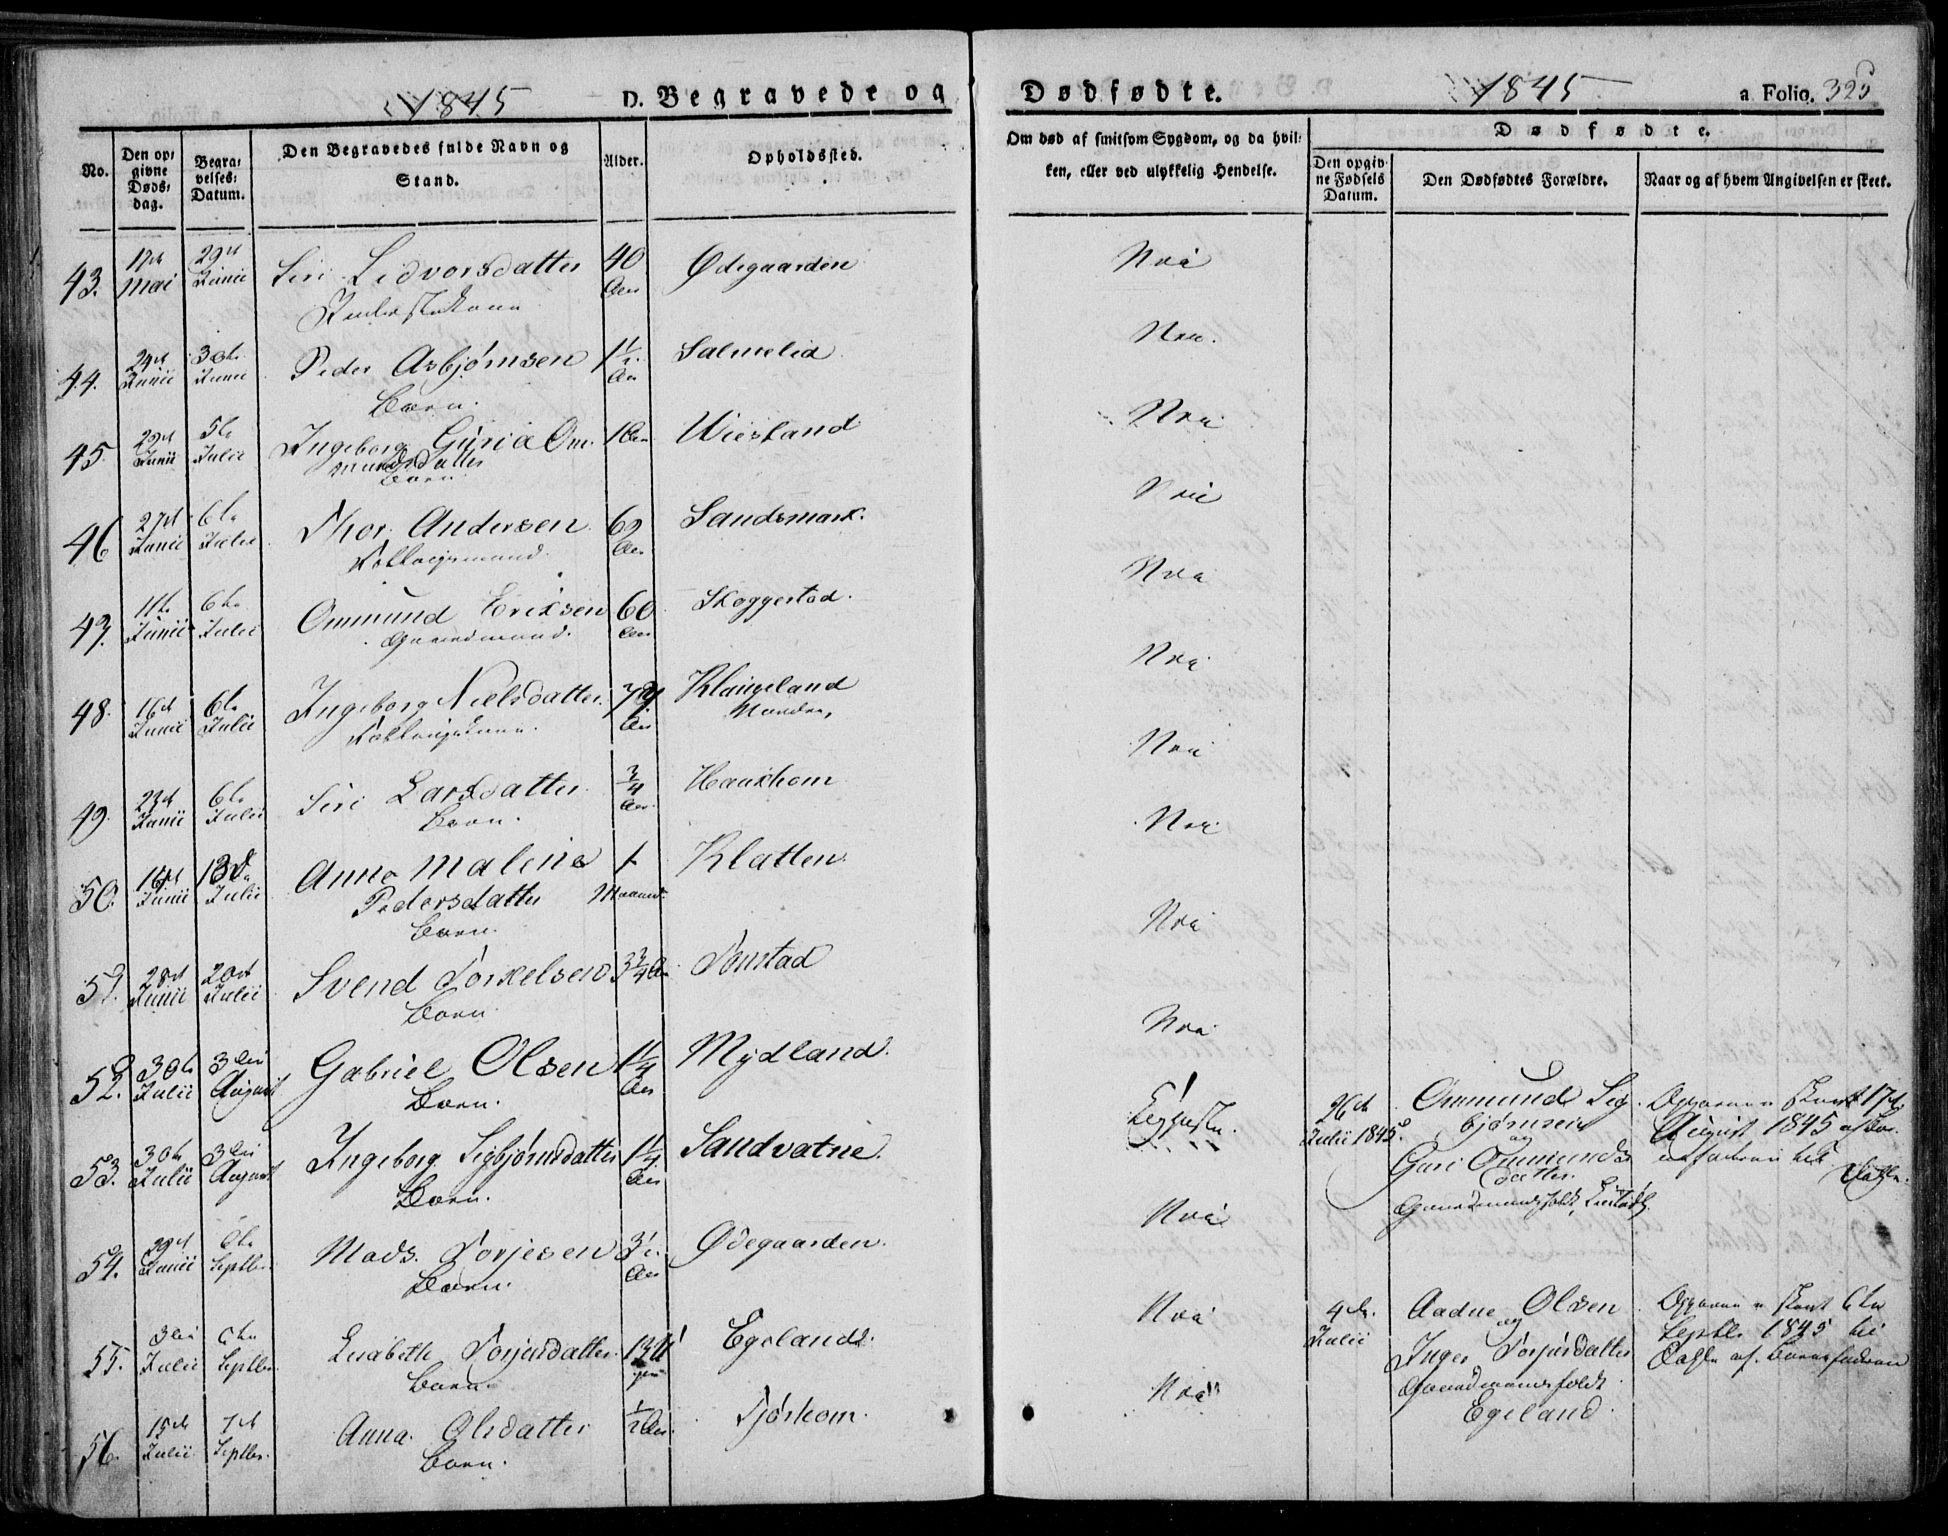 1845
D. Begravede og
No.
Den op-
givne
Døds-
dag.
Begra-
velses-
Datum.
Den Begravedes fulde Navn og
Stand.
Alder.
Opholdssted.
43. 17de Mai 29de Junii Siri Lidvorsdatter 40 Aar Ødegaarden
44. 24de Junii 30te Junii Peder Asbjørnsen 1½ Aar Salmelid
Barn.
45. 29de Junii 5te Julii Ingeborg Guria Om- 1 Aar Wiesland
mundsdatter
Barn.
46. 27de Junii 6te Julii Thor Andersen 62 Aar Sandsmark.
47. 11te Junii 6te Julii Ommund Erixsen 60 Aar Skoggestad.
Gaardmand.
48. 16de Junii 6te Julii Ingeborg Nielsdatter Aar Klungeland
49. 23de Junii 6te Julii Siri Larsdatter ¾ Aar Haaxhom
Barn.
50. 16de Junii 13de Julii Anne Maline 1 Maaned Klatten
Pedersdatter
Barn.
51. 28de Junii 20de Julii Svend Torkelsen 3¾ Aar Tonstad
Barn.
52. 30te Julii 3die August Gabriel Olsen 1¼ Aar Mydland.
Barn.
53. 30te Julii 3die August Ingeborg Sigbjørnsdatter 1¼ Aar Sandvatne.
Barn.
54. 29de Junii 6te Septbr. Mads Torjesen 3½ Aar Ødegaarden.
Barn.
55. 3die Julii 6te Septbr. Lisabeth Torjersdatter Egeland.
Barn.
56. 15de Julii 7de Septbr. Anna Olsdatter ½ Aar. Tjørhom.
Barn.
Dødfødte.
1845
a Folio. 325
Om død af smitsom Sygdom, og da hvil-
ken, eller ved ulykkelig Hendelse.
Dødfødte.
Den opgiv-
ne Fødsels
Datum.
Den Dødfødtes Forældre.
Naar og af hvem Angivelsen er skeet.
Nei
Nei
Nei
Nei
Nei
Nei
Nei
Nei
Nei
Nei
26de Julii 1845. Ommund Sig-
bjørnsen
og
Guri Ommunds
datter.
Gaardmandsfolk
skeet 17de
August 1845 af
Nei
Nei
4de Julii Aadne Olsen
og
Inger Torjersdatter
Gaardmandsfolk
Egeland.
skeet 6te
Septbr. 1845 til
af Barnefaderen
Nei